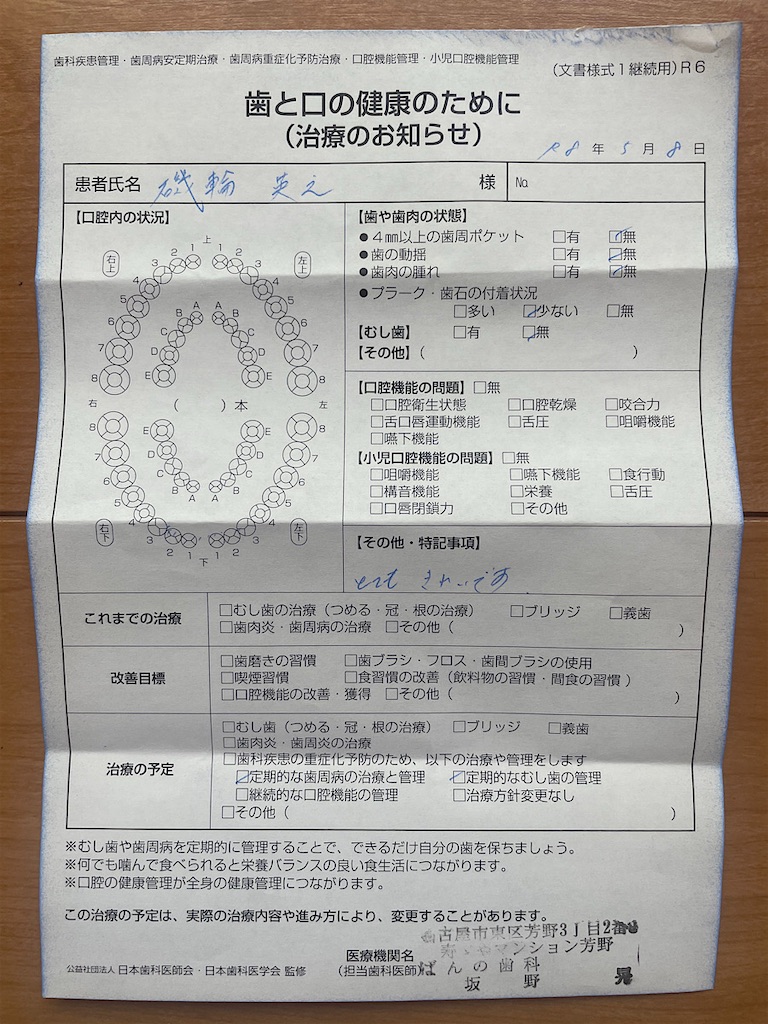 歯科疾患管理・歯周病安定期治療・歯周病重症化予防治療・口腔機能管理・小児口腔機能管理
(文書様式1継続用)R6
歯と口の健康のために
(治療のお知らせ)
R8年5月8日
患者氏名 磯輪 英之 様 №
【口腔内の状況】
上
右上 左上
2 1 1 2
3 3
4 4
5 5
6 6
7 7
8 8
A A
B B
C C
D D
E E
右 ( )本 左
8 8
7 7
6 6
5 5
4 4
3 2 1 1 2 3
E E
D D
C C
B A A B
右下 左下
下
【歯や歯肉の状態】
●4mm以上の歯周ポケット □有 ☑無
●歯の動揺 □有 ☑無
●歯肉の腫れ □有 ☑無
●プラーク・歯石の付着状況
□多い ☑少ない □無
【むし歯】 □有 ☑無
【その他】( )
【口腔機能の問題】□無
□口腔衛生状態 □口腔乾燥 □咬合力
□舌口唇運動機能 □舌圧 □咀嚼機能
□嚥下機能
【小児口腔機能の問題】□無
□咀嚼機能 □嚥下機能 □食行動
□構音機能 □栄養 □舌圧
□口唇閉鎖力 □その他
【その他・特記事項】
とても きれいです
これまでの治療
□むし歯の治療(つめる・冠・根の治療) □ブリッジ □義歯
□歯肉炎・歯周病の治療 □その他( )
改善目標
□歯磨きの習慣 □歯ブラシ・フロス・歯間ブラシの使用
□喫煙習慣 □食習慣の改善(飲料物の習慣・間食の習慣)
□口腔機能の改善・獲得 □その他( )
治療の予定
□むし歯(つめる・冠・根の治療) □ブリッジ □義歯
□歯肉炎・歯周炎の治療
□歯科疾患の重症化予防のため、以下の治療や管理をします
☑定期的な歯周病の治療と管理 ☑定期的なむし歯の管理
□継続的な口腔機能の管理 □治療方針変更なし
□その他( )
※むし歯や歯周病を定期的に管理することで、できるだけ自分の歯を保ちましょう。
※何でも噛んで食べられると栄養バランスの良い食生活につながります。
※口腔の健康管理が全身の健康管理につながります。
この治療の予定は、実際の治療内容や進み方により、変更することがあります。
古屋市東区芳野3丁目2番
マンション芳野
医療機関名
(担当歯科医師) ばんの歯科
坂野
公益社団法人 日本歯科医師会・日本歯科医学会 監修